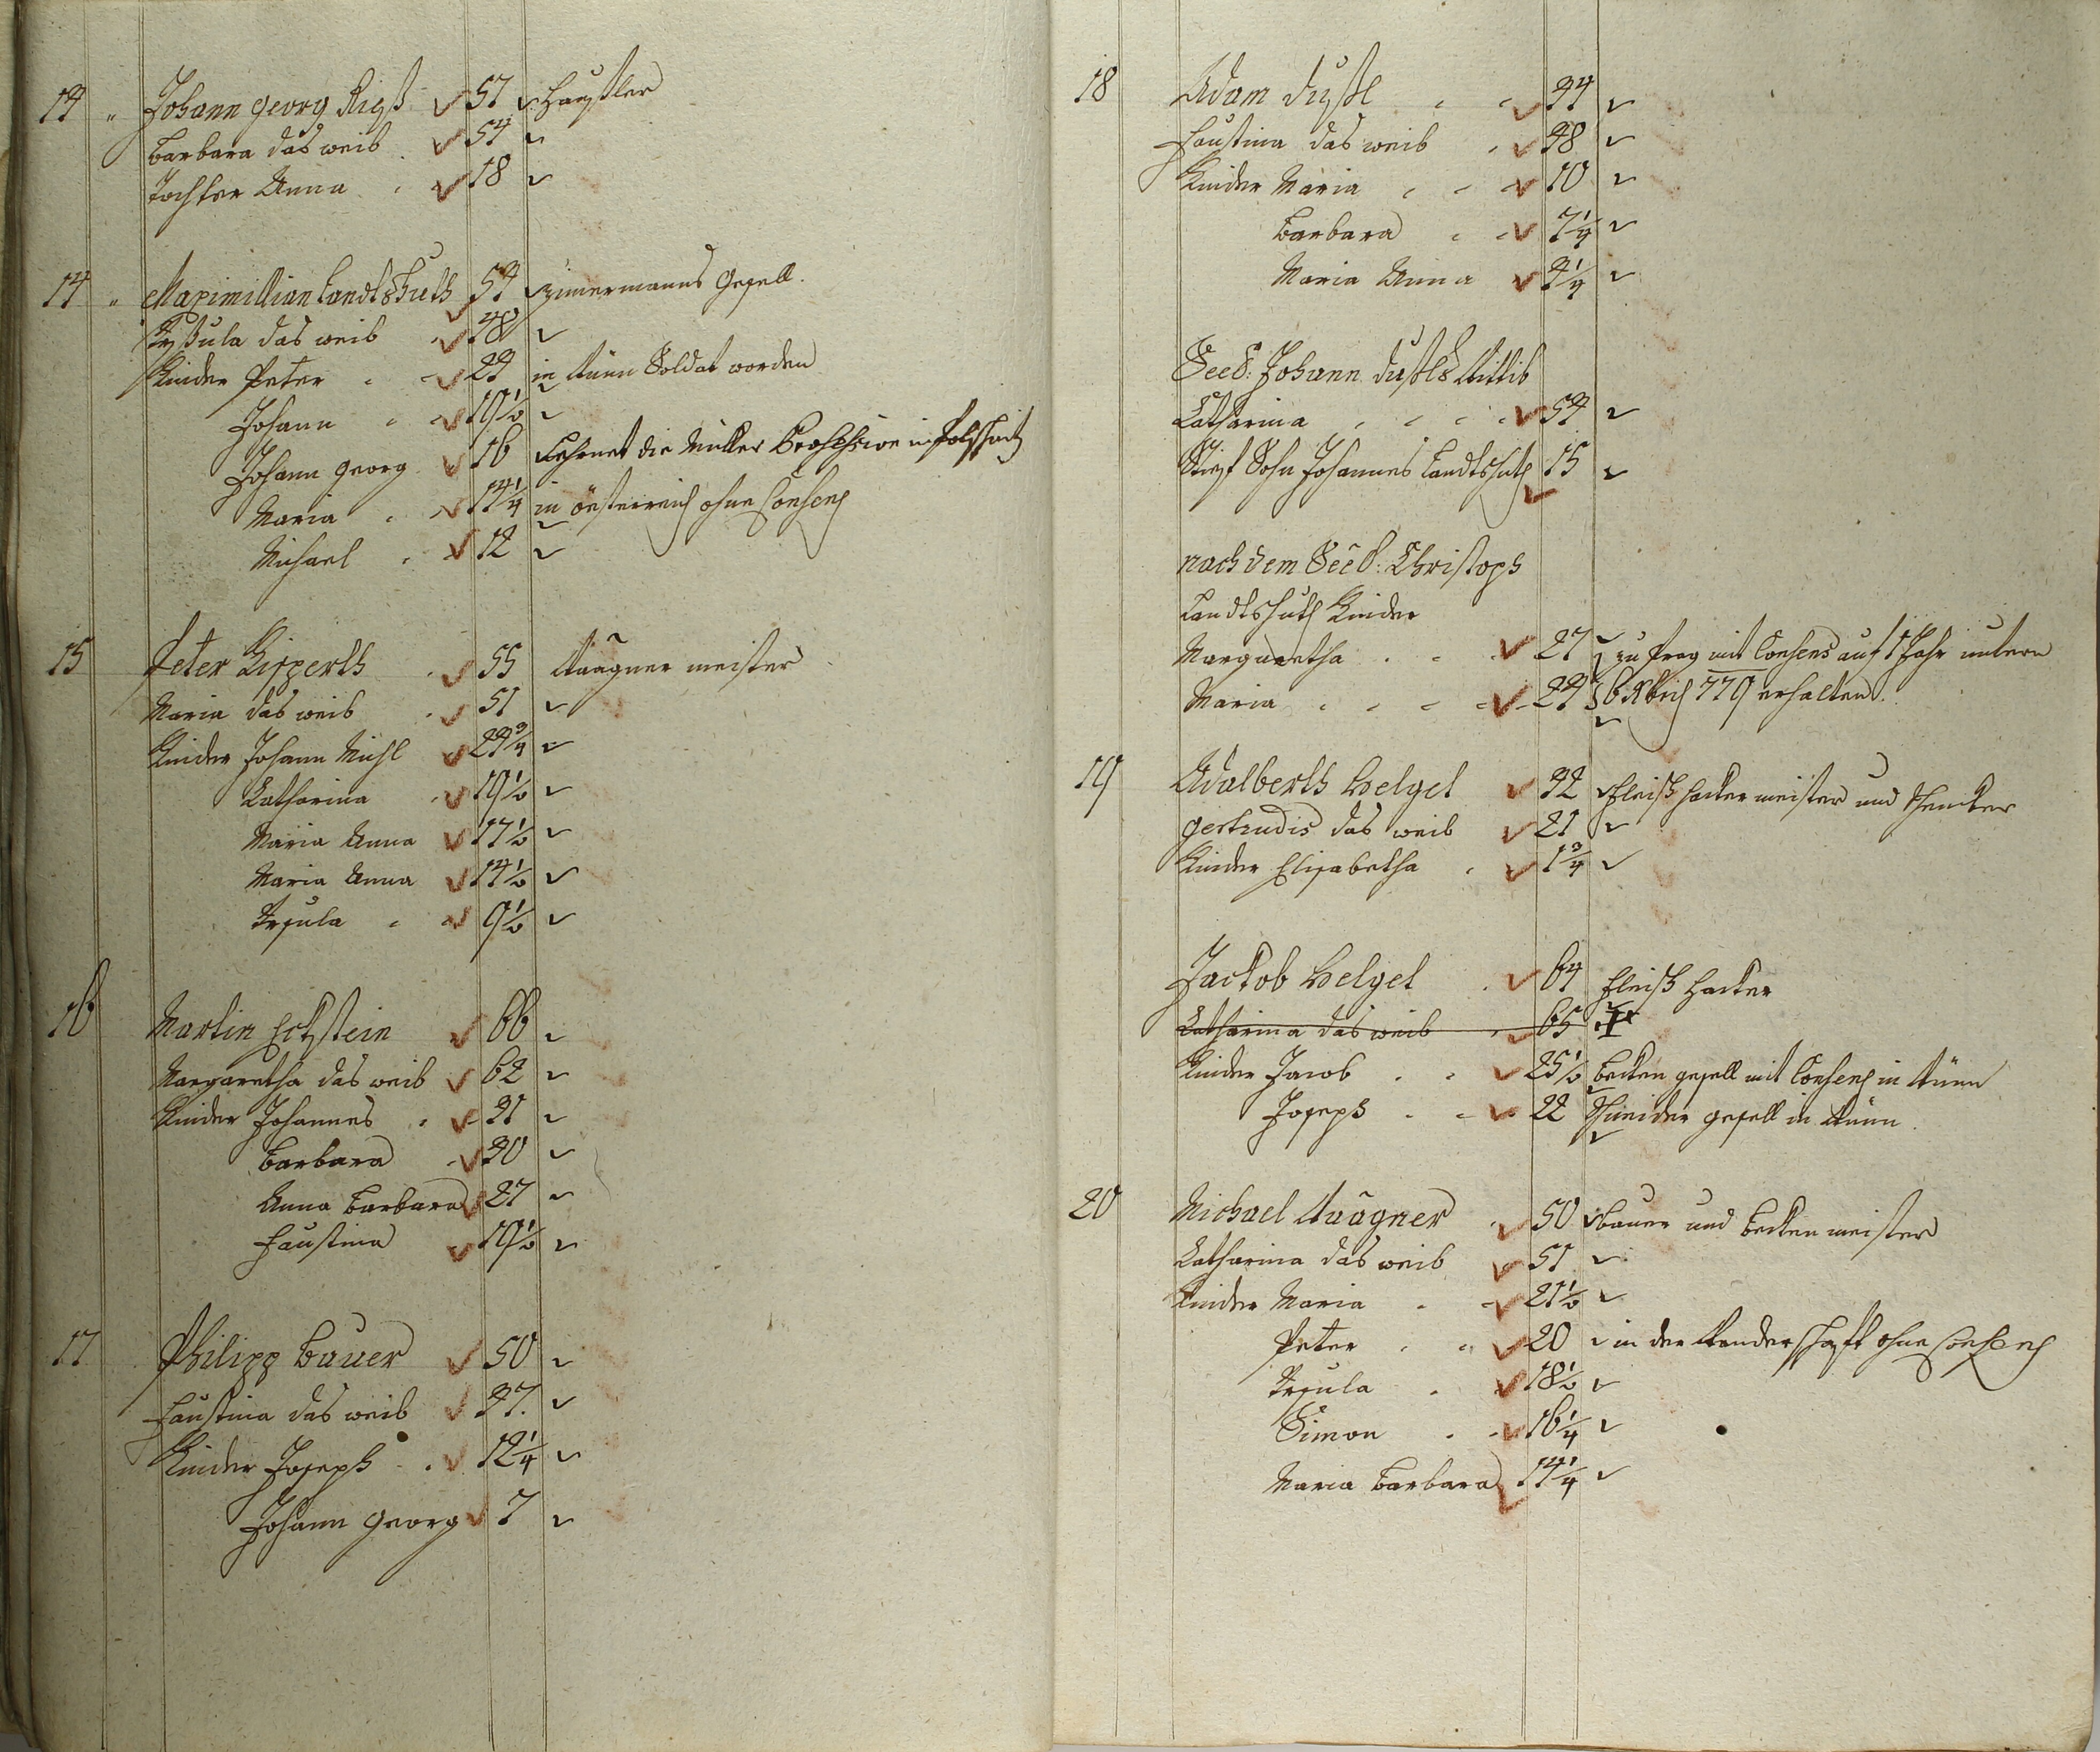 Johann georg Rieß 57 Haußler
Barbara das weib 54
Tochter Anna 18
14 Maximillian Landtshuth 54 Zimermanns Gesell.
Ursula das weib 48
Kinder Peter 24 in Wünn Soldat worden
Johann 19 1/2
Johann georg 16 Lehrnet die Müller
Maria 14 1/4 in össterreich ohne Consens
Michael 12
15 Peter Lipperth 55 Waagner meister
Maria das weib 51
Kinder Johann Michl 24 3/4
Catharina 19 1/2
Maria Anna 17 1/2
Maria Anna 14 1/2
Ursula 9 1/2
16 Martin Eckstein 66
Margaretha das weib 62
Kinder Johannes 31
Barbara 30
Anna Barbara 27
Faustina 19 1/2
17 Philipp Bauer 50
Faustina das weib 37.
Kinder Joseph 12 1/4
Johann Georg 7
18 Adam Dußl 44
Faustina das weib 48
Kinder Maria 10
Barbara 7 1/4
Maria Anna 4 1/4
Seel: Johann Dußls Wittib
Catharina 54
Stief Sohn Johannes Landtshuth 15
nach dem Seel: Christoph
Landtshuth Kinder
Margaretha 27 zu Prag mit Consens auf 1 Jahr untern
Maria 24 erhalten.
19 Adalberth Helgel 32 Fleisch hacker meister und Schencker
Gertrudis das weib 21
Kinder Elisabetha 1 3/4
Jackob Helgel 64 Fleisch Hacker
Catharina das weib 65 †
Kinder Jacob 25 1/2 Becken gesell mit Consens in Wünn
Joseph 22 Schneider gesell in Wünn
20 Michael Waagner 50 Bauer und Becken meister
Catharina das weib 51
Kinder Maria 21 1/2
Peter 20 in der Wanderschafft ohne Consens
Ursula 18 1/2
Simon 16 1/4
Maria Barbara 14 1/4